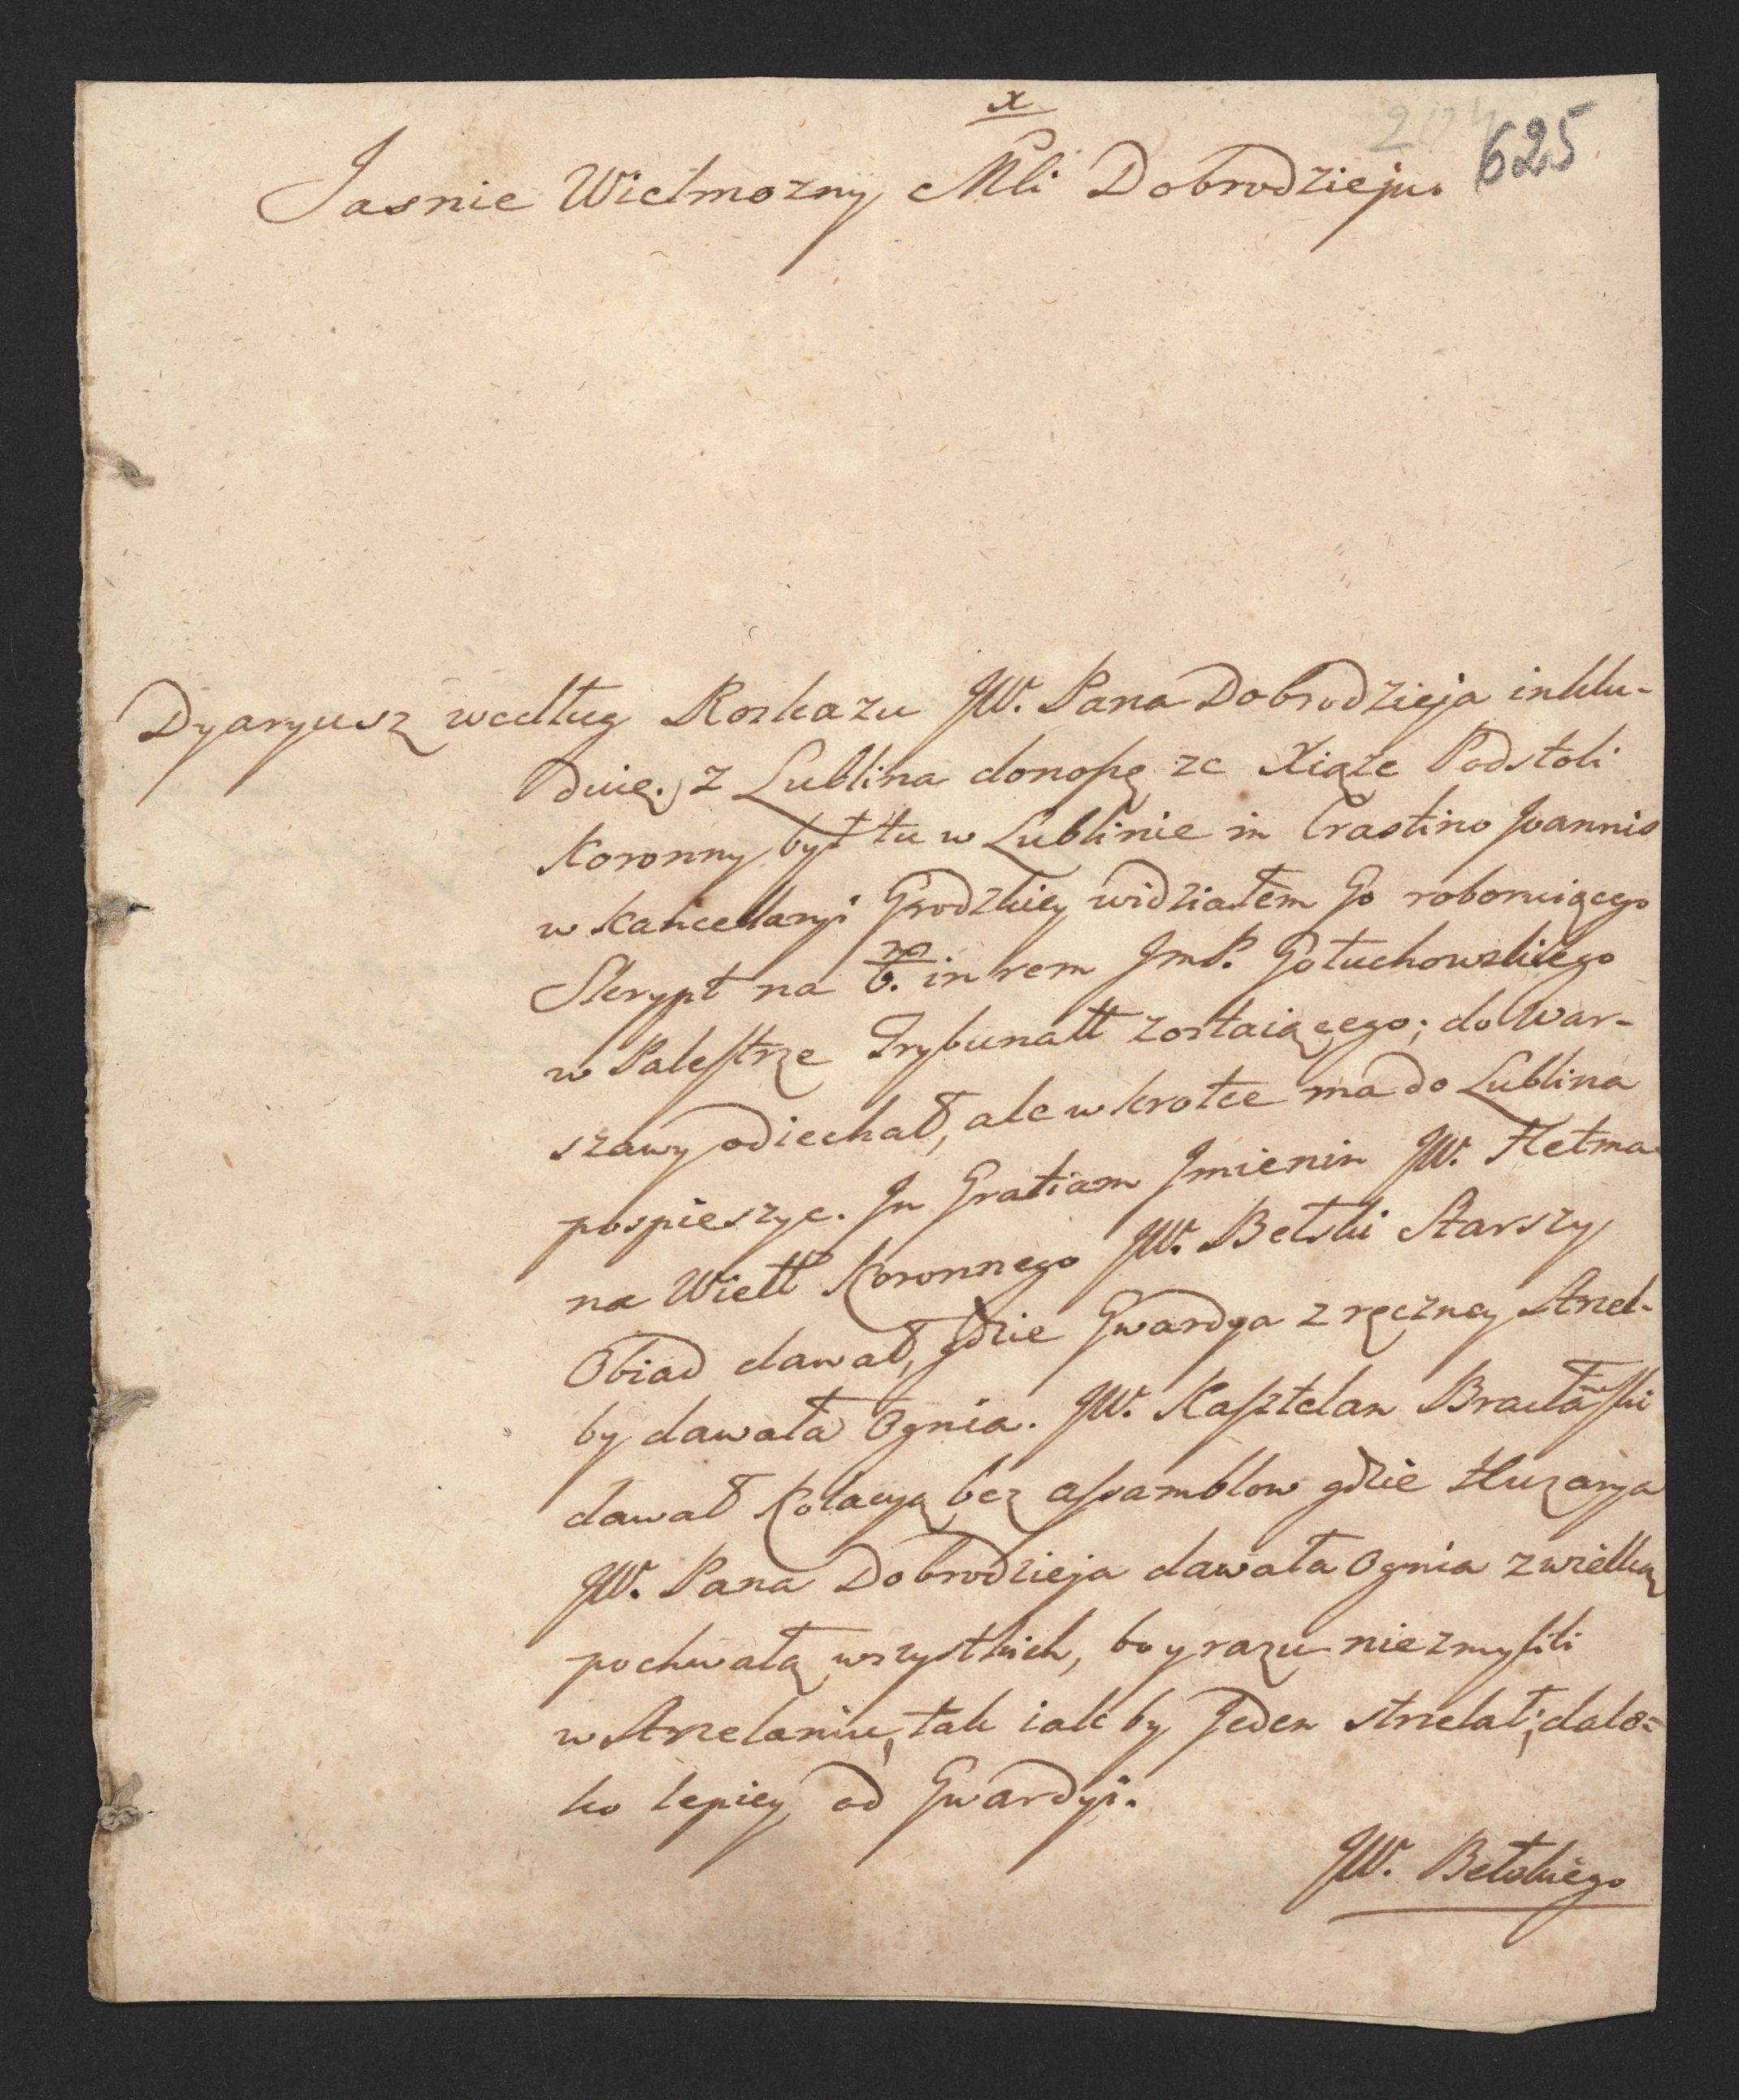 x
625
Jasnie Wielmozny Mći Dobrodzieju.
Dyaryusz według Roskazu JW. Pana Dobrodzieja inklu-
duię. z Lublina donoszę ze Xiąze Podstoli
Koronny był tu w Lublinie in Crastino Joannis
w Kancellaryi Grodzkiey widziałem Go roboruiącego
Skrypt na 6. m in rem JmP. Gołuchowskiego
w Palestrze Trybunalł zostaiącego; do War-
szawy odiechał, ale wkrotce ma do Lublina
pospieszyc. In Gratiam Jmienin JW. Hetma-
na Wielł Koronnego JW. Bełski Starszy
Obiad dawał, gdzie Gwardya z ręczney Strzel-
by dawała Ognia. JW. Kasztelan Bracławski
dawał Kolacyą bez assamblow gdzie Huzarya
JW. Pana Dobrodzieja dawała Ognia z wielką
pochwałą wszystkich, bo y razu niezmylili
w Strzelaniu, tak iak by Jeden strzelał; dale-
ko lepiey od Gwardyi.
JW. Bełskiego